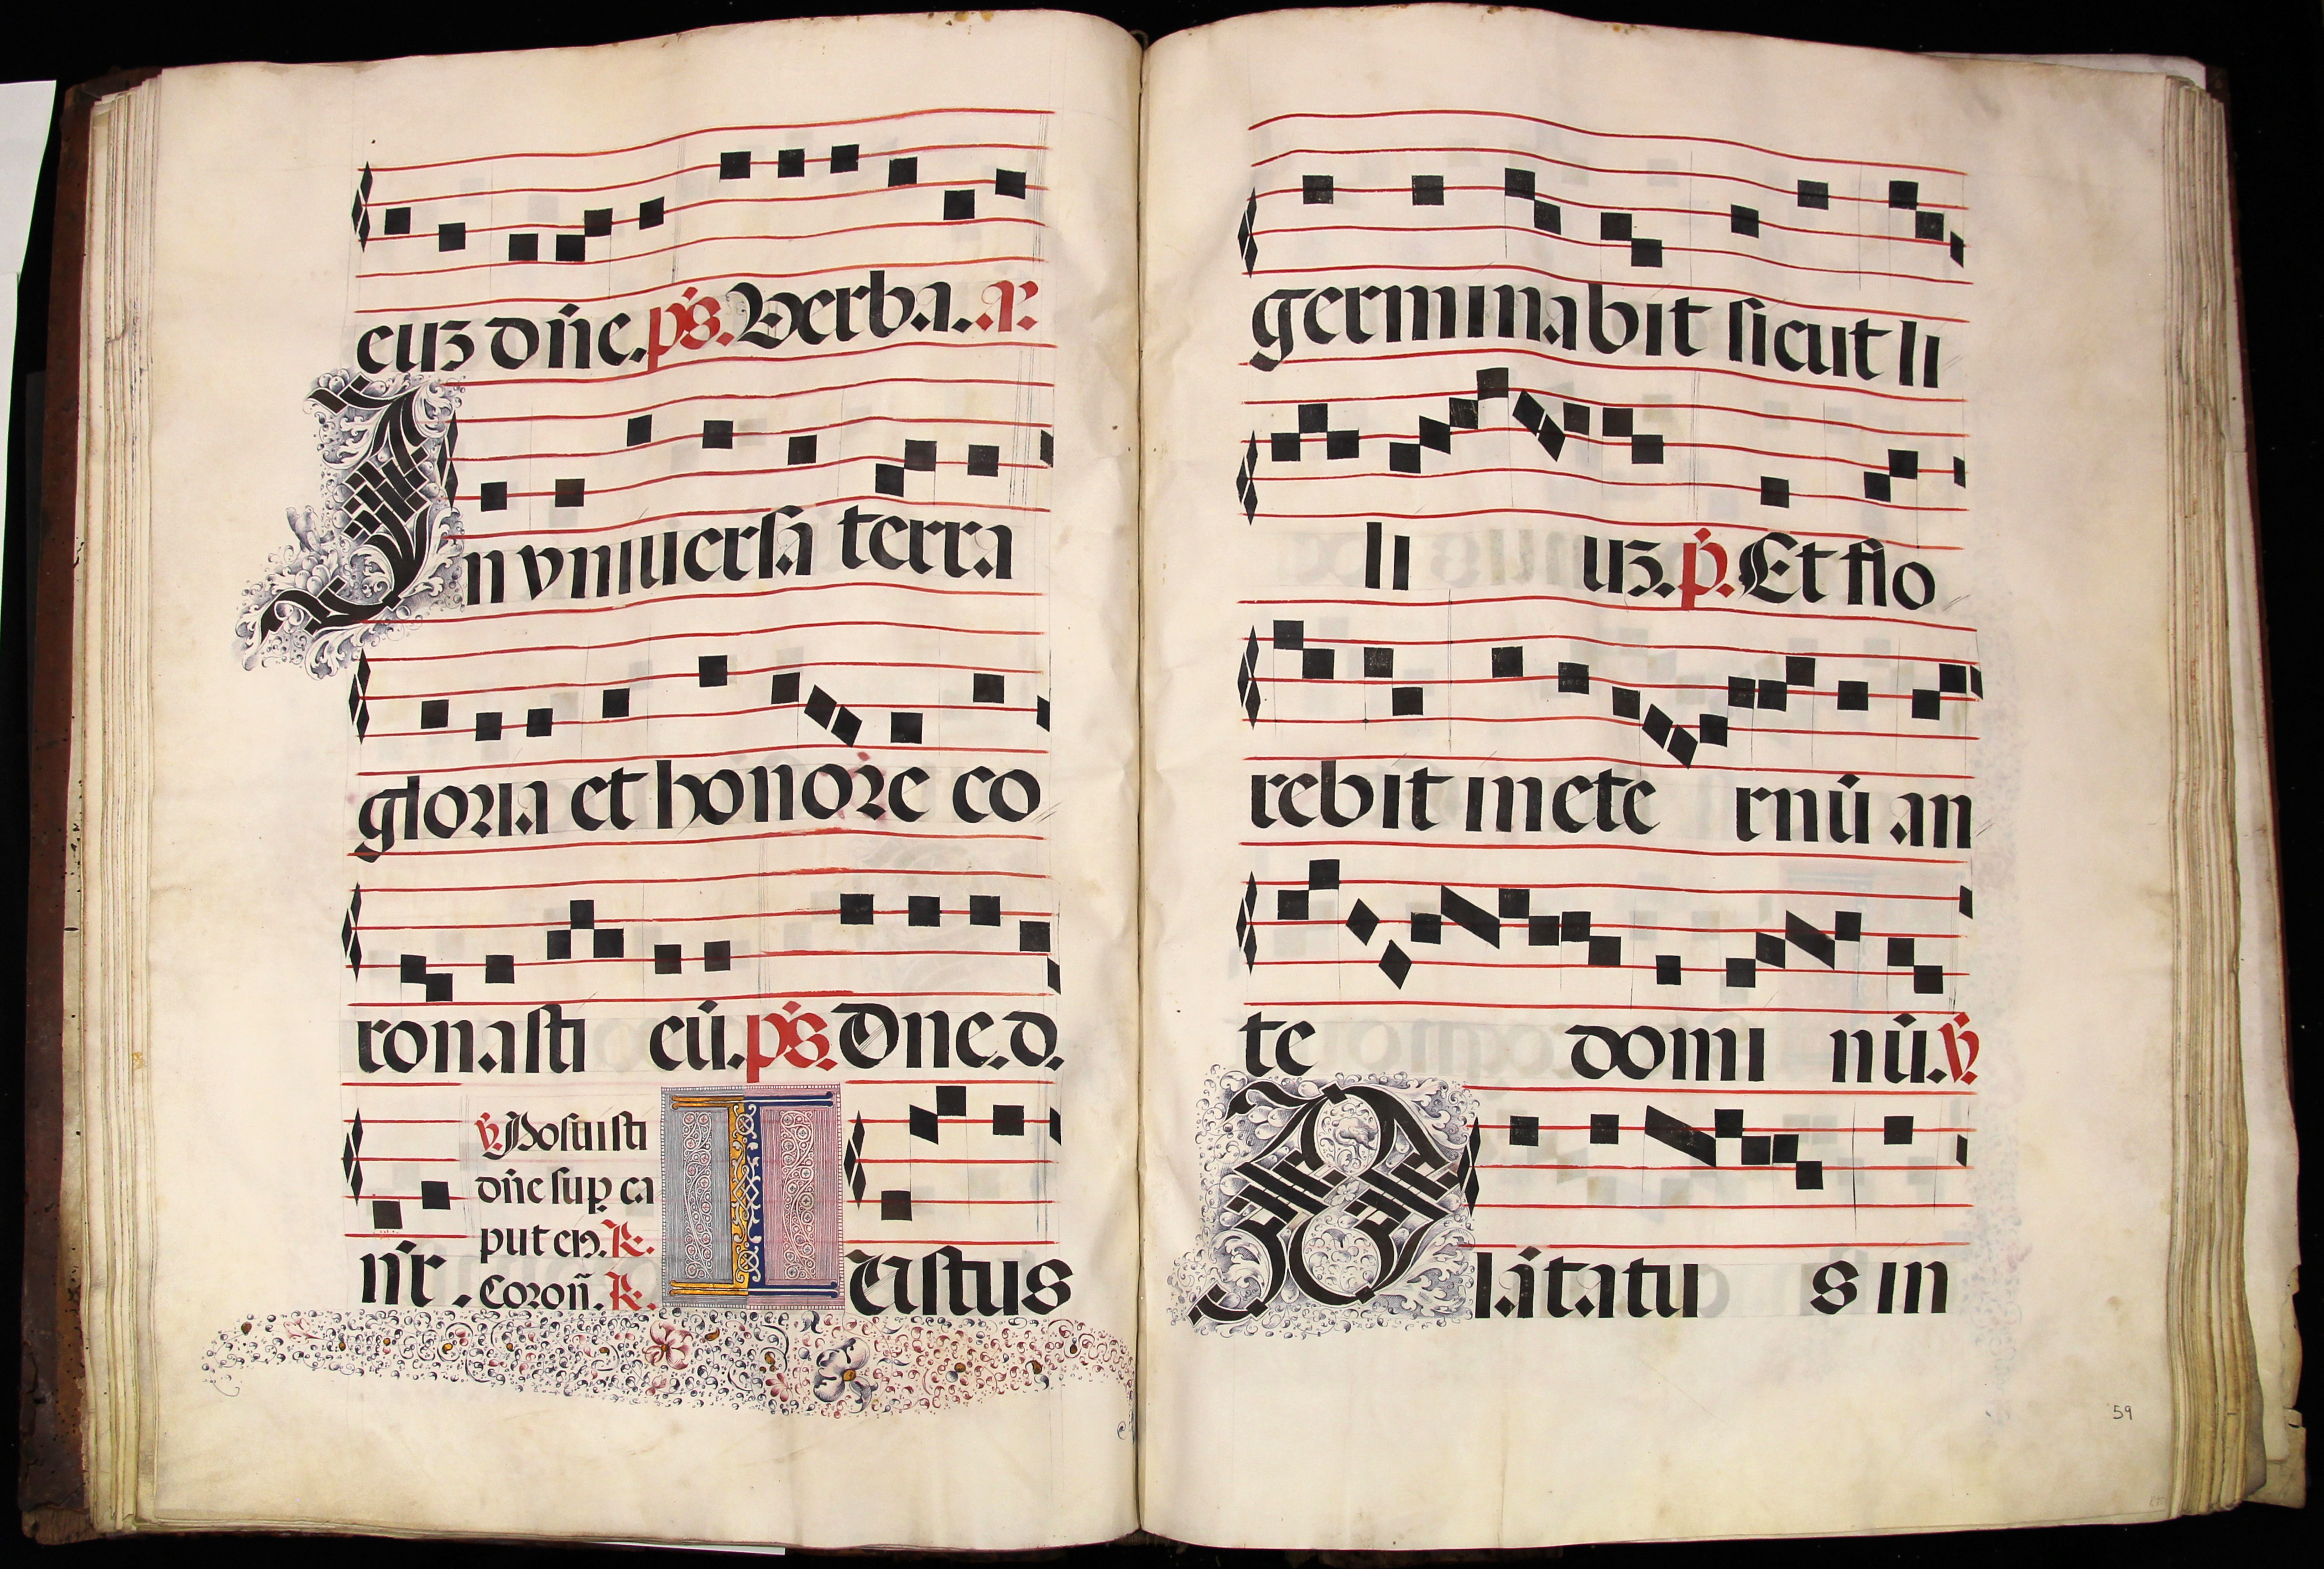 euz dñe. ps. Verba. a.
In vniuersa terra
gloria et honore co
ronasti eū. ps. Dne. d.
nr̃. ℣. Posuisti
dñe sup ca
put ei9. ℟.
Coroñ. ℟. Iustus
germinabit sicut li
li uz. p̄. Et flo
rebit in ete rnū an
te domi nū. ℣.
Plātatu s in
59